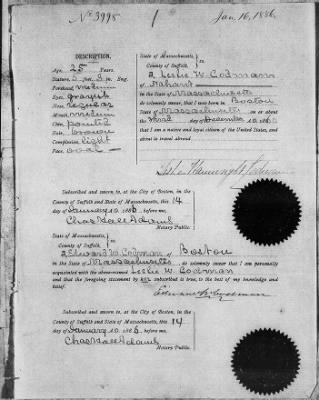 No. 3998
Jan. 16, 1886.
DESCRIPTION.
Age, 25 Years.
Stature, 5 feet, 8 in. Eng.
Forehead, medium
Eyes, grayish
Nose, regular
Mouth, medium
Chin, pointed
Hair, brown
Complexion, light
Face, oval
State of Massachusetts,
County of Suffolk,
I Leslie W. Codman
of Nahant
in the State of Massachusetts
do solemnly swear, that I was born in Boston
Massachusetts on or about
the third day of December 1860
that I am a native and loyal citizen of the United States, and
about to travel abroad.
Subscribed and sworn to, at the City of Boston, in the
County of Suffolk and State of Massachusetts, this 14
day of January 1886, before me,
Chas Hall Adams
Notary Public.
State of Massachusetts,
County of Suffolk,
I Edward W. Codman of Boston
in the State of Massachusetts, do solemnly swear that I am personally
acquainted with the above-named Leslie W. Codman
and that the foregoing statement by him subscribed is true, to the best of my knowledge and
belief.
Edward W. Codman
Subscribed and sworn to, at the City of Boston, in the
County of Suffolk and State of Massachusetts, this 14
day of January 1886, before me,
Chas Hall Adams
Notary Public.